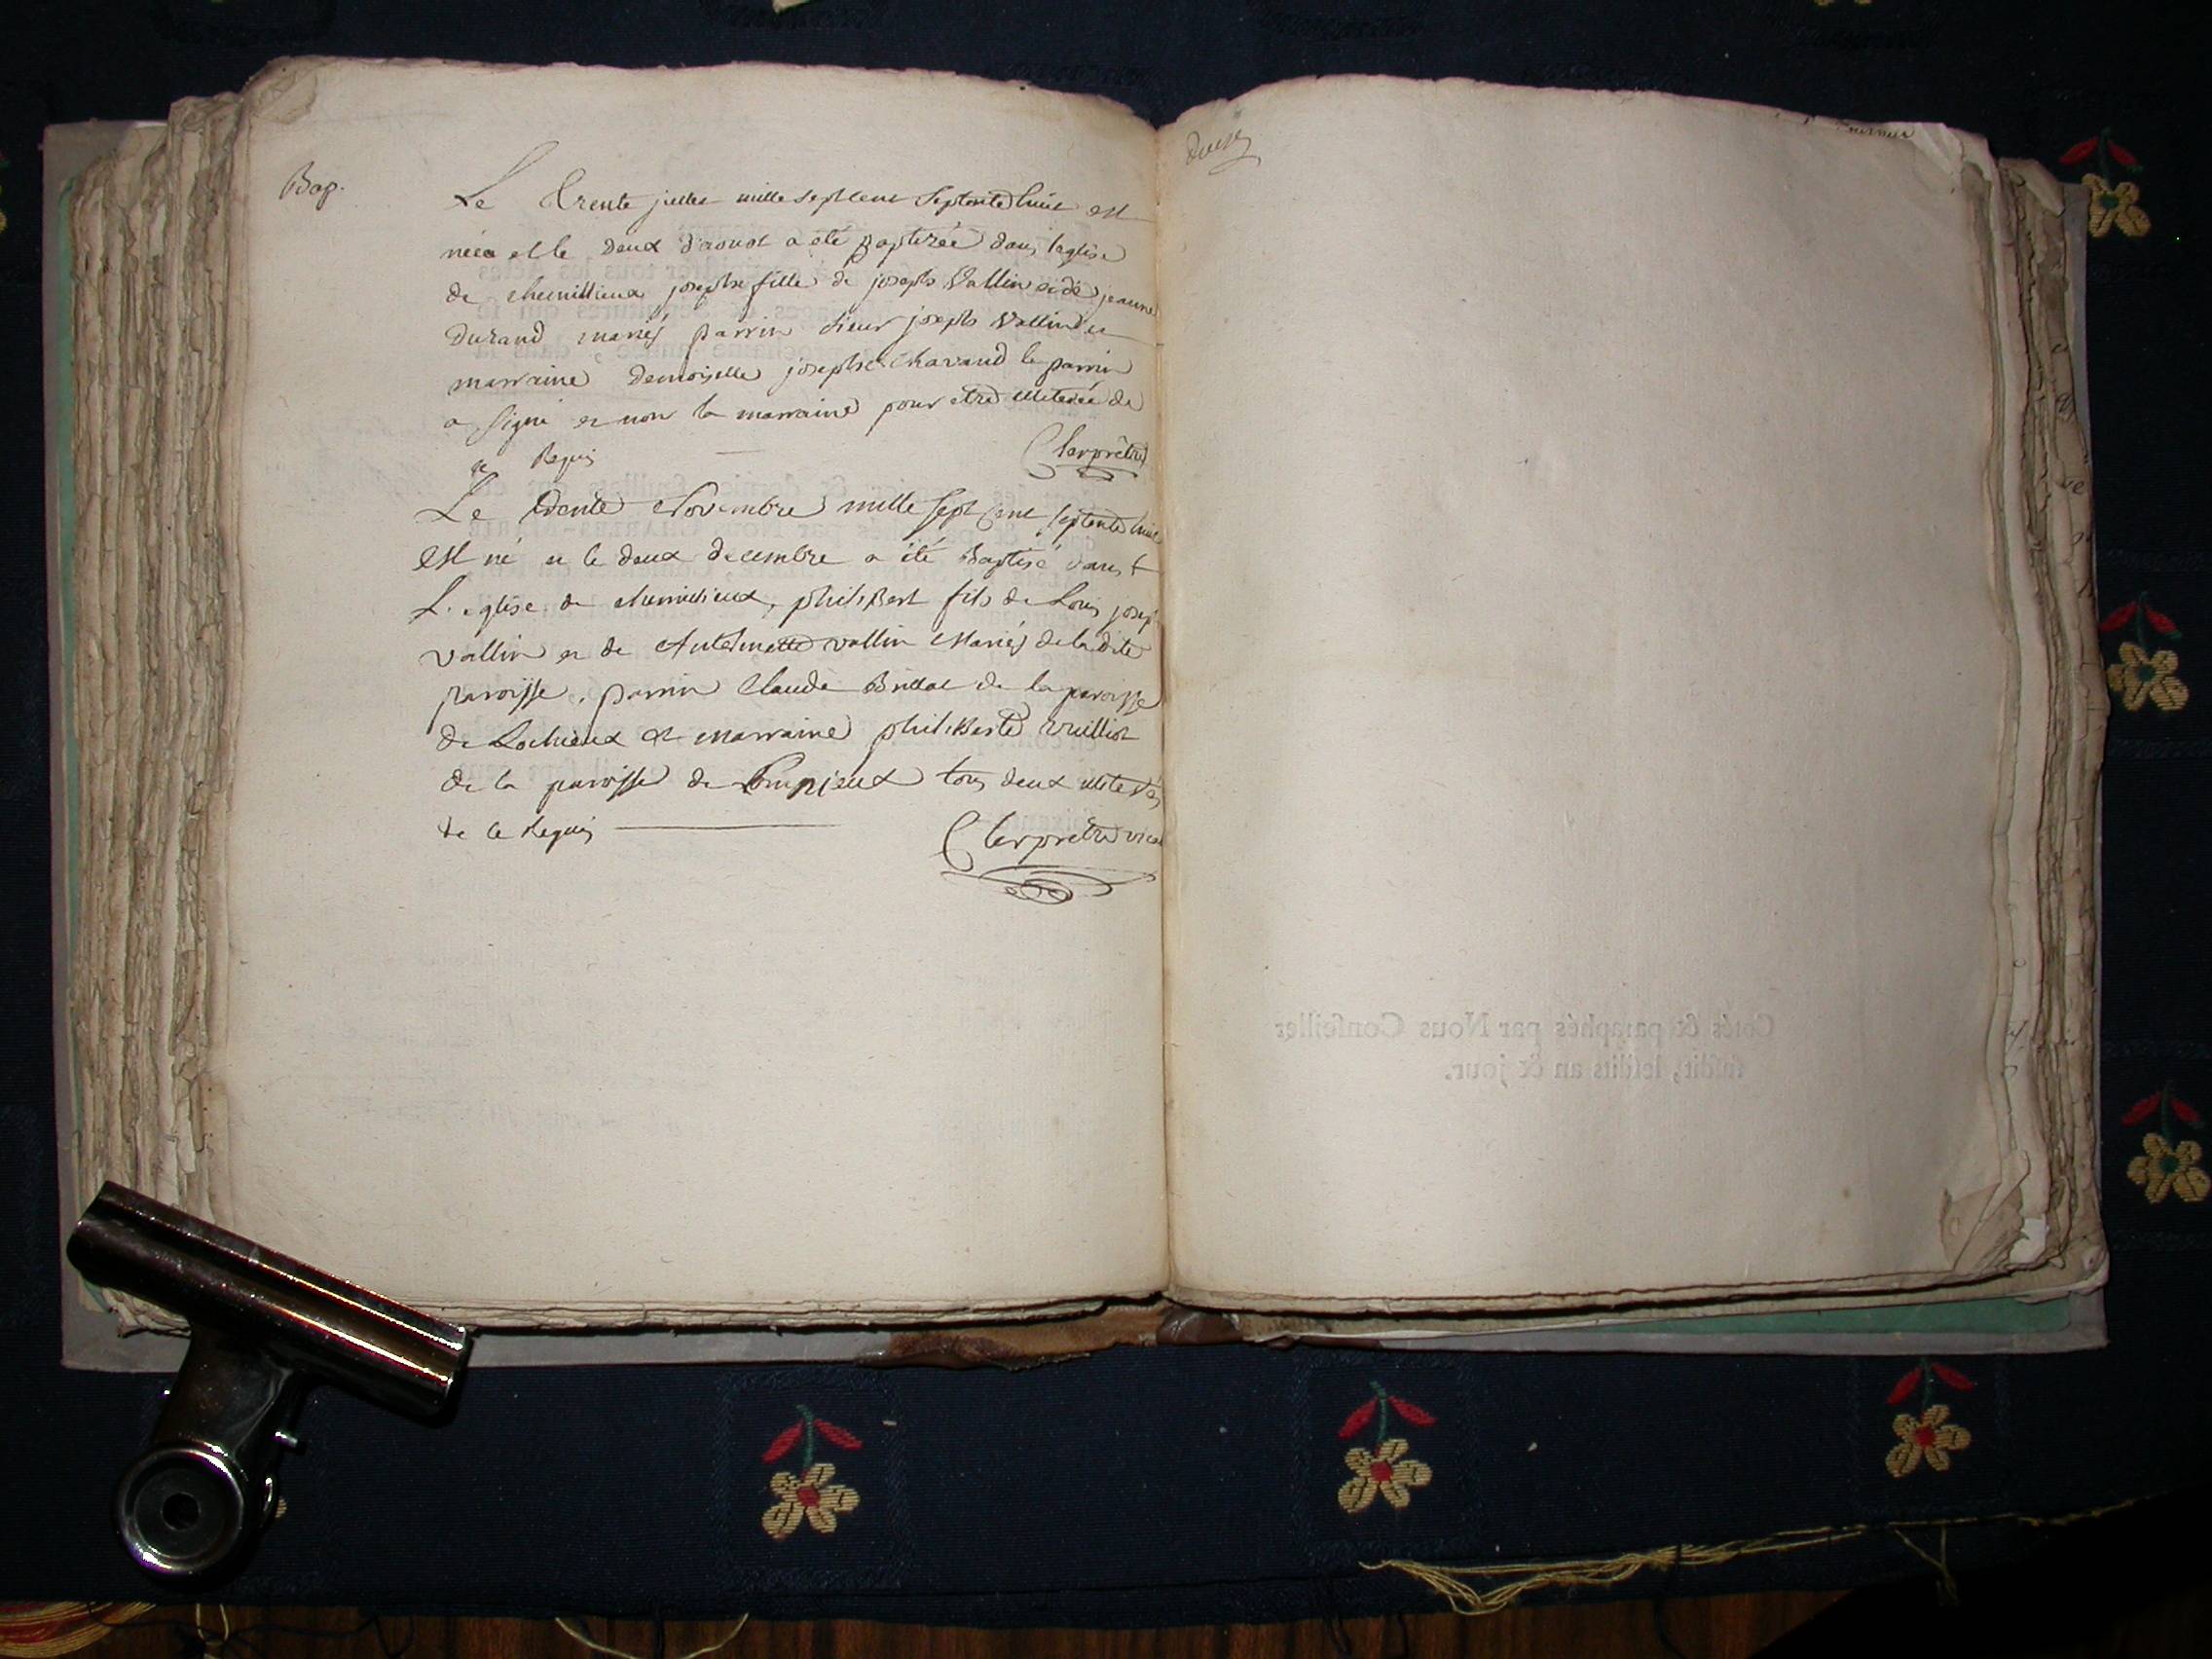 Bap.
Le trente juillet mille sept cent septente huit est
née et le deux d'aoust a été Baptizée dans l'eglise
de chemillieux josephte fille de joseph Vallin et de jeanne
Durand mariés parrin sieur joseph Vallin et
marraine demoiselle josephte Chavand le parrin
a signé et non la marraine pour etre illiterée de
ce Requis
Clerprêtre
Le trente Novembre mille sept cent septente huit
est né et le deux decembre a été Baptisé dans
L'eglise de chemillieux, philiBert fils de Louis josep
vallin et de Antelmette vallin Mariés de la dite
paroisse, parrin Claude Brillat de la paroisse
de Lochieux et marraine philiBerte vuilliot
de la paroisse de tous deux illiterés
de ce Requis
Clerpretre vica
Cotés & paraphés par Nous Conseiller
susdit, lesdits an & jour.